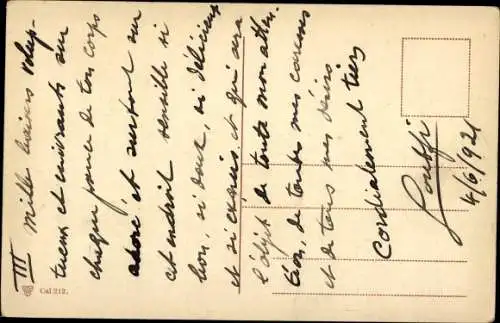 III
Mille baisers volup-
tueux et enivrants sur
chaque pouce de ton corps
adoré et surtout sur
cet endroit sensible si
bon, si doux, si délicieux
et si exquis. et qui sera
l'objet de toute mon atten-
tion, de toutes mes caresses
et de tous mes désirs
Cordialement tien
4/6/921
Cal 212.